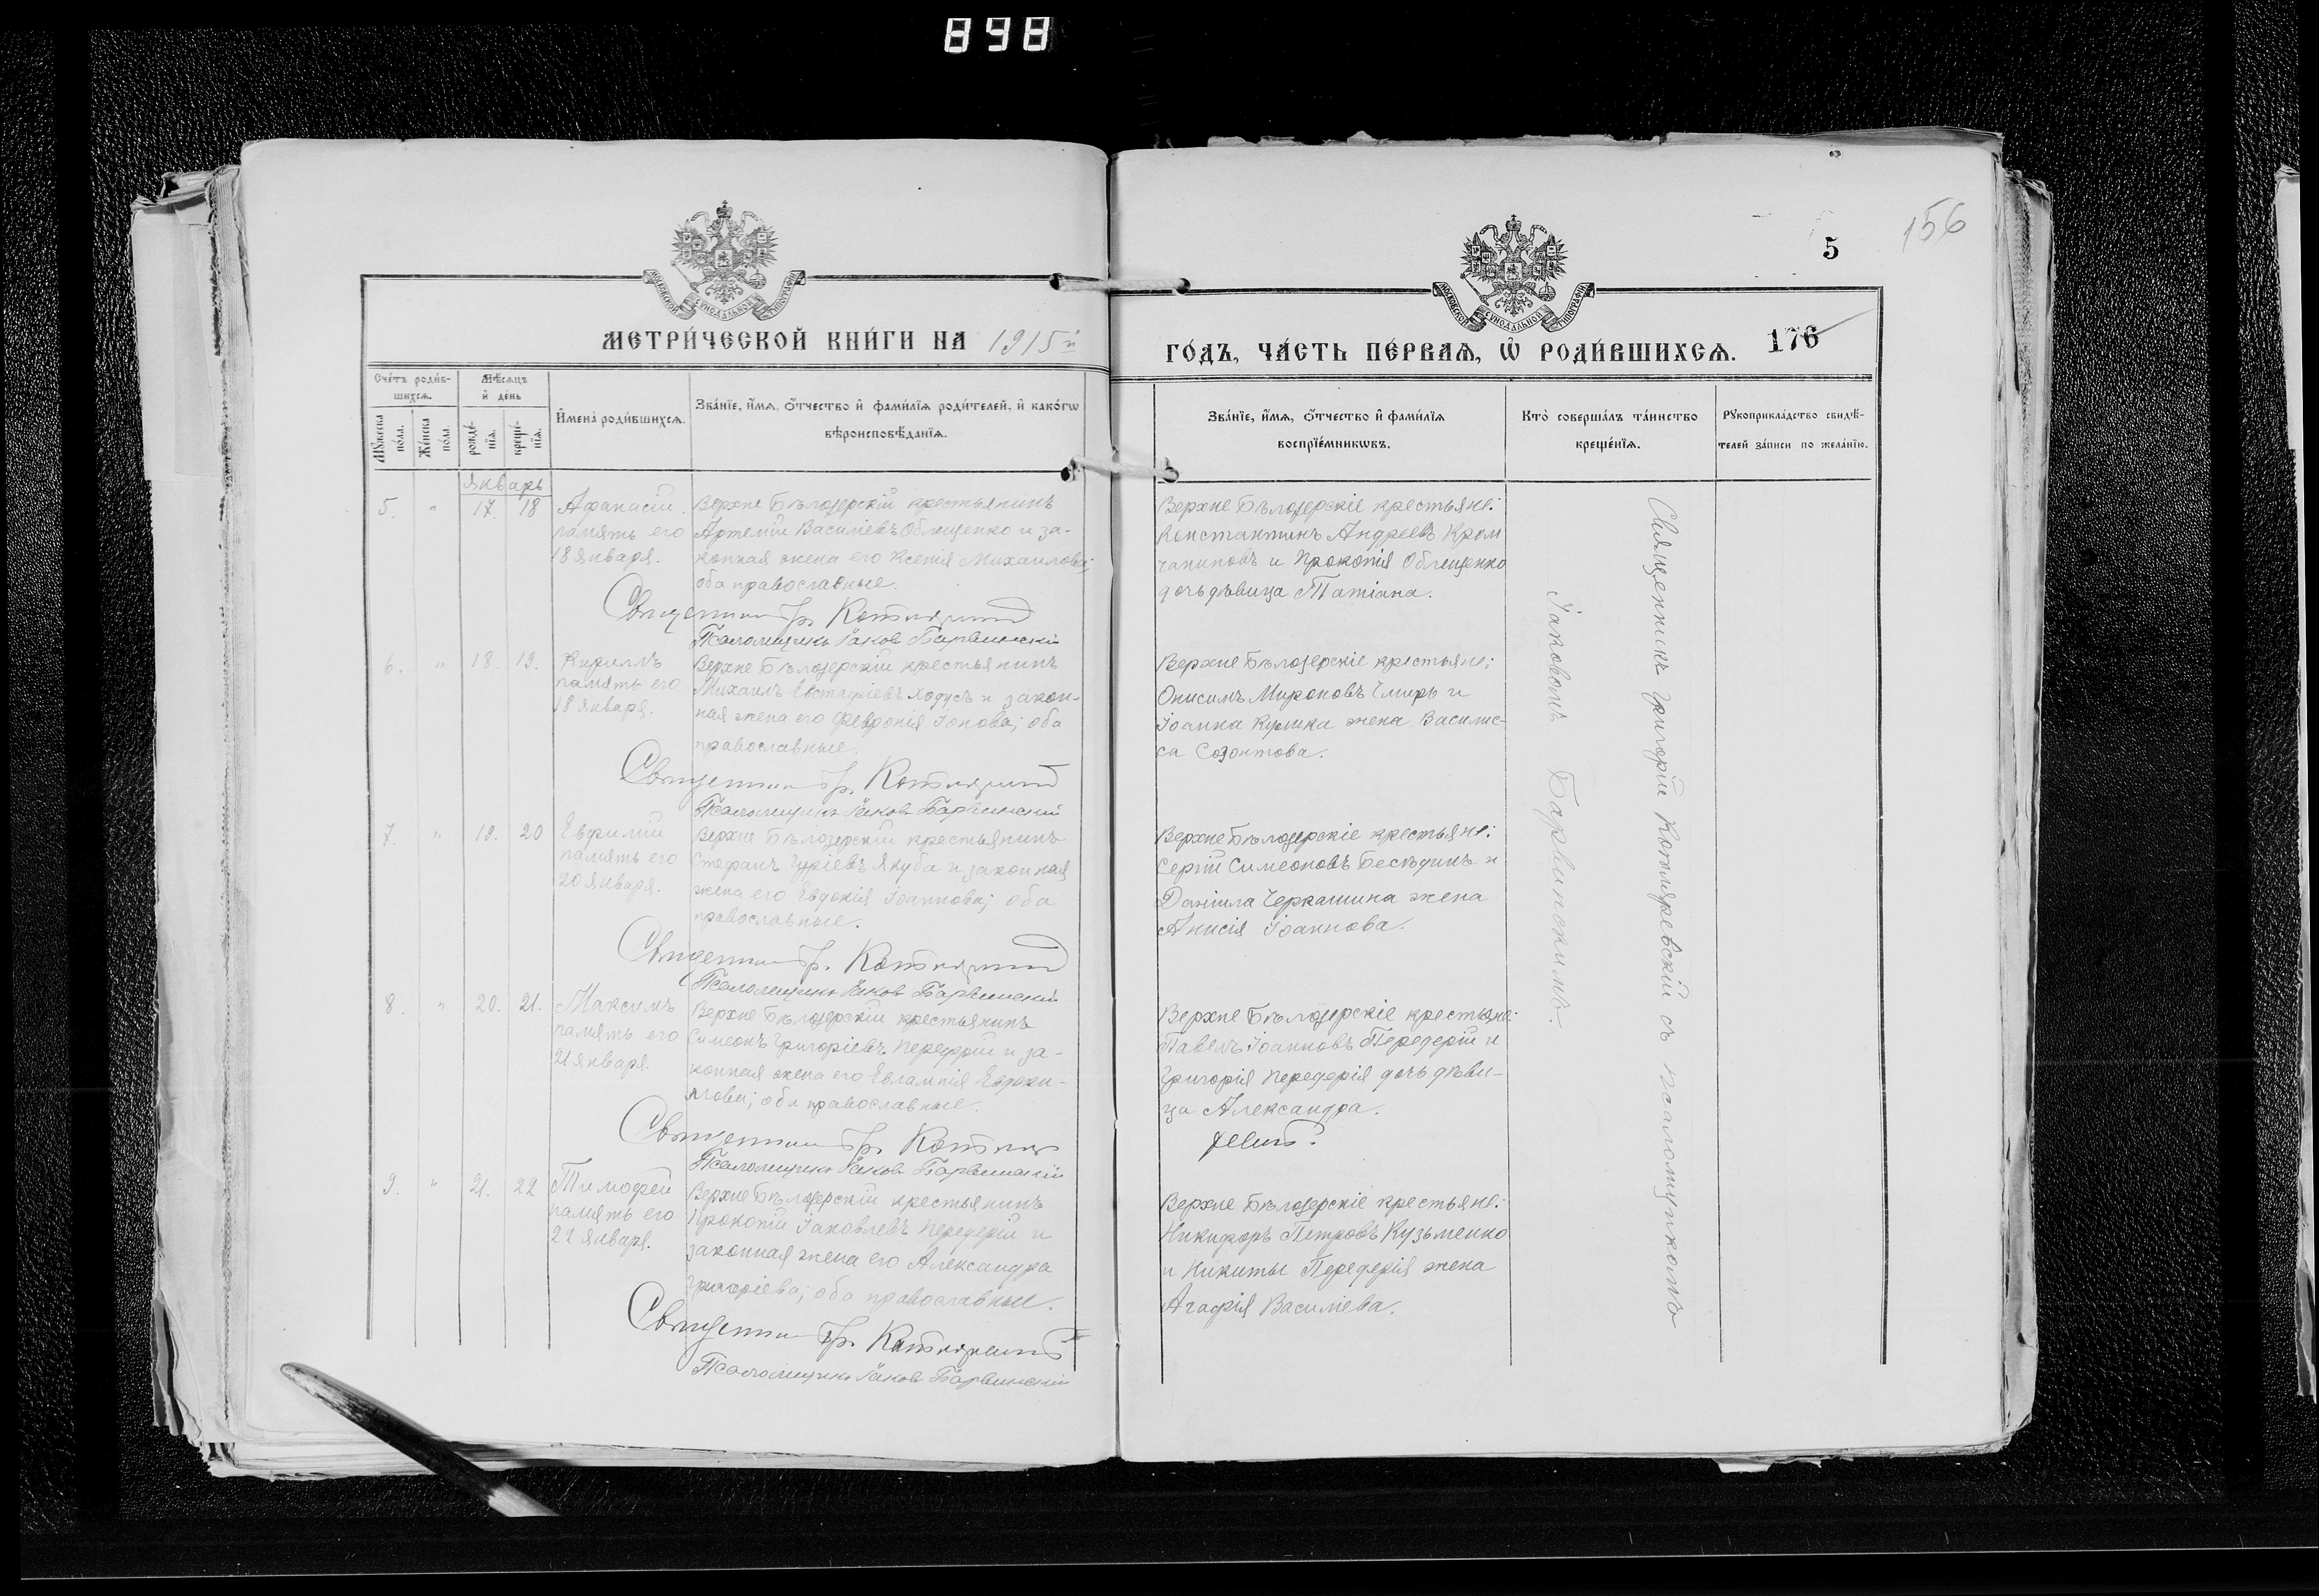 898
156
5
176
МОСКОВСКОЙ СѴНОДАЛЬНОЙ ТИПОГРАФІИ
МОСКОВСКОЙ СѴНОДАЛЬНОЙ ТИПОГРАФІИ
МЕТРИ́ЧЕСКОЙ КНИ́ГИ НА 1915й
ГО́ДЪ, ЧА́СТЬ ПЕ́РВАѦ, Ѡ҆ РОДИ́ВШИХСѦ.
Сче́тъ роди́в-
шихсѧ.
Мꙋ́жеска по́ла.
Же́нска по́ла.
Мѣ́сѧцъ
и҆ де́нь
рожде́-
нїѧ.
креще́-
нїѧ.
И҆мена̀ роди́вшихсѧ.
Зва́нїе, и҆́мѧ, ѻ҆́тчество и҆ фами́лїѧ роди́телей, и҆ како́гѡ
вѣроисповѣ́данїѧ.
Зва́нїе, и҆́мѧ, ѻ҆́тчество и҆ фами́лїѧ
воспрїе́мникѡвъ.
Кто̀ соверша́лъ та́инство
креще́нїѧ.
Рꙋкоприкла́дство свидѣ́-
телей за́писи по жела́нїю.
Январь
5. " 17. 18
Афанасій
память его
18 января.
Верхне Бѣлозерскій крестьянинъ
Артемій Василіевъ Облещенко и за-
конная жена его Ксенія Михаилова;
оба православные.
Священникъ Гр. Котляревскій
Псаломщикъ Іаковъ Барвинскій
Верхне Бѣлозерскіе крестьяне:
Константинъ Андреевъ Кром
чаниновъ и Прокопія Облещенко
дочь дѣвица Татіана.
6. " 18. 19.
Кириллъ
память его
18 января.
Верхне Бѣлозерскій крестьянинъ
Михаилъ Евстафіевъ Ходусъ и закон-
ная жена его Феврронія Іонова; оба
православные.
Священникъ Гр. Котляревскій
Псаломщикъ Іаковъ Барвинскій
Верхне Бѣлозерскіе крестьяне:
Онисимъ Мироновъ Чмирь и
Іоанна Кулика жена Василис-
са Созонтова.
7. " 19. 20
Евфимій
память его
20 января.
Верхне Бѣлозерскій крестьянинъ
Стефанъ Гуріевъ Якуба и законная
жена его Евдокія Іоаннова; оба
православные.
Священникъ Гр. Котляревскій
Псаломщикъ Іаковъ Барвинскій
Верхне Бѣлозерскіе крестьяне:
Сергій Симеоновъ Бесѣдинъ и
Даніила Черкашина жена
Анисія Іоаннова.
8. " 20. 21.
Максимъ
память его
21 января.
Верхне Бѣлозерскій крестьянинъ
Симеонъ Григоріевъ Передерій и за-
конная жена его Евлампія Евдоки-
мова; оба православные.
Священникъ Гр. Котляр
Псаломщикъ Іаковъ Барвинскій
Верхне Бѣлозерскіе крестьяне:
Павелъ Іоанновъ Передерій и
Григорія Передерія дочь дѣви-
ца Александра.
9. " 21. 22
Тимофей
память его
22 января.
Верхне Бѣлозерскій крестьянинъ
Прокопій Іаковлевъ Передерій и
законная жена его Александра
Григоріева; оба православные.
Священникъ Гр. Котляревскій
Псаломщикъ Іаковъ Барвинскій
Верхне Бѣлозерскіе крестьяне:
Никифоръ Петровъ Кузьменко
и Никиты Передерія жена
Агафія Василіева.
Священникъ Григорій Котляревскій съ псаломщикомъ
Іаковомъ Барвинскимъ.